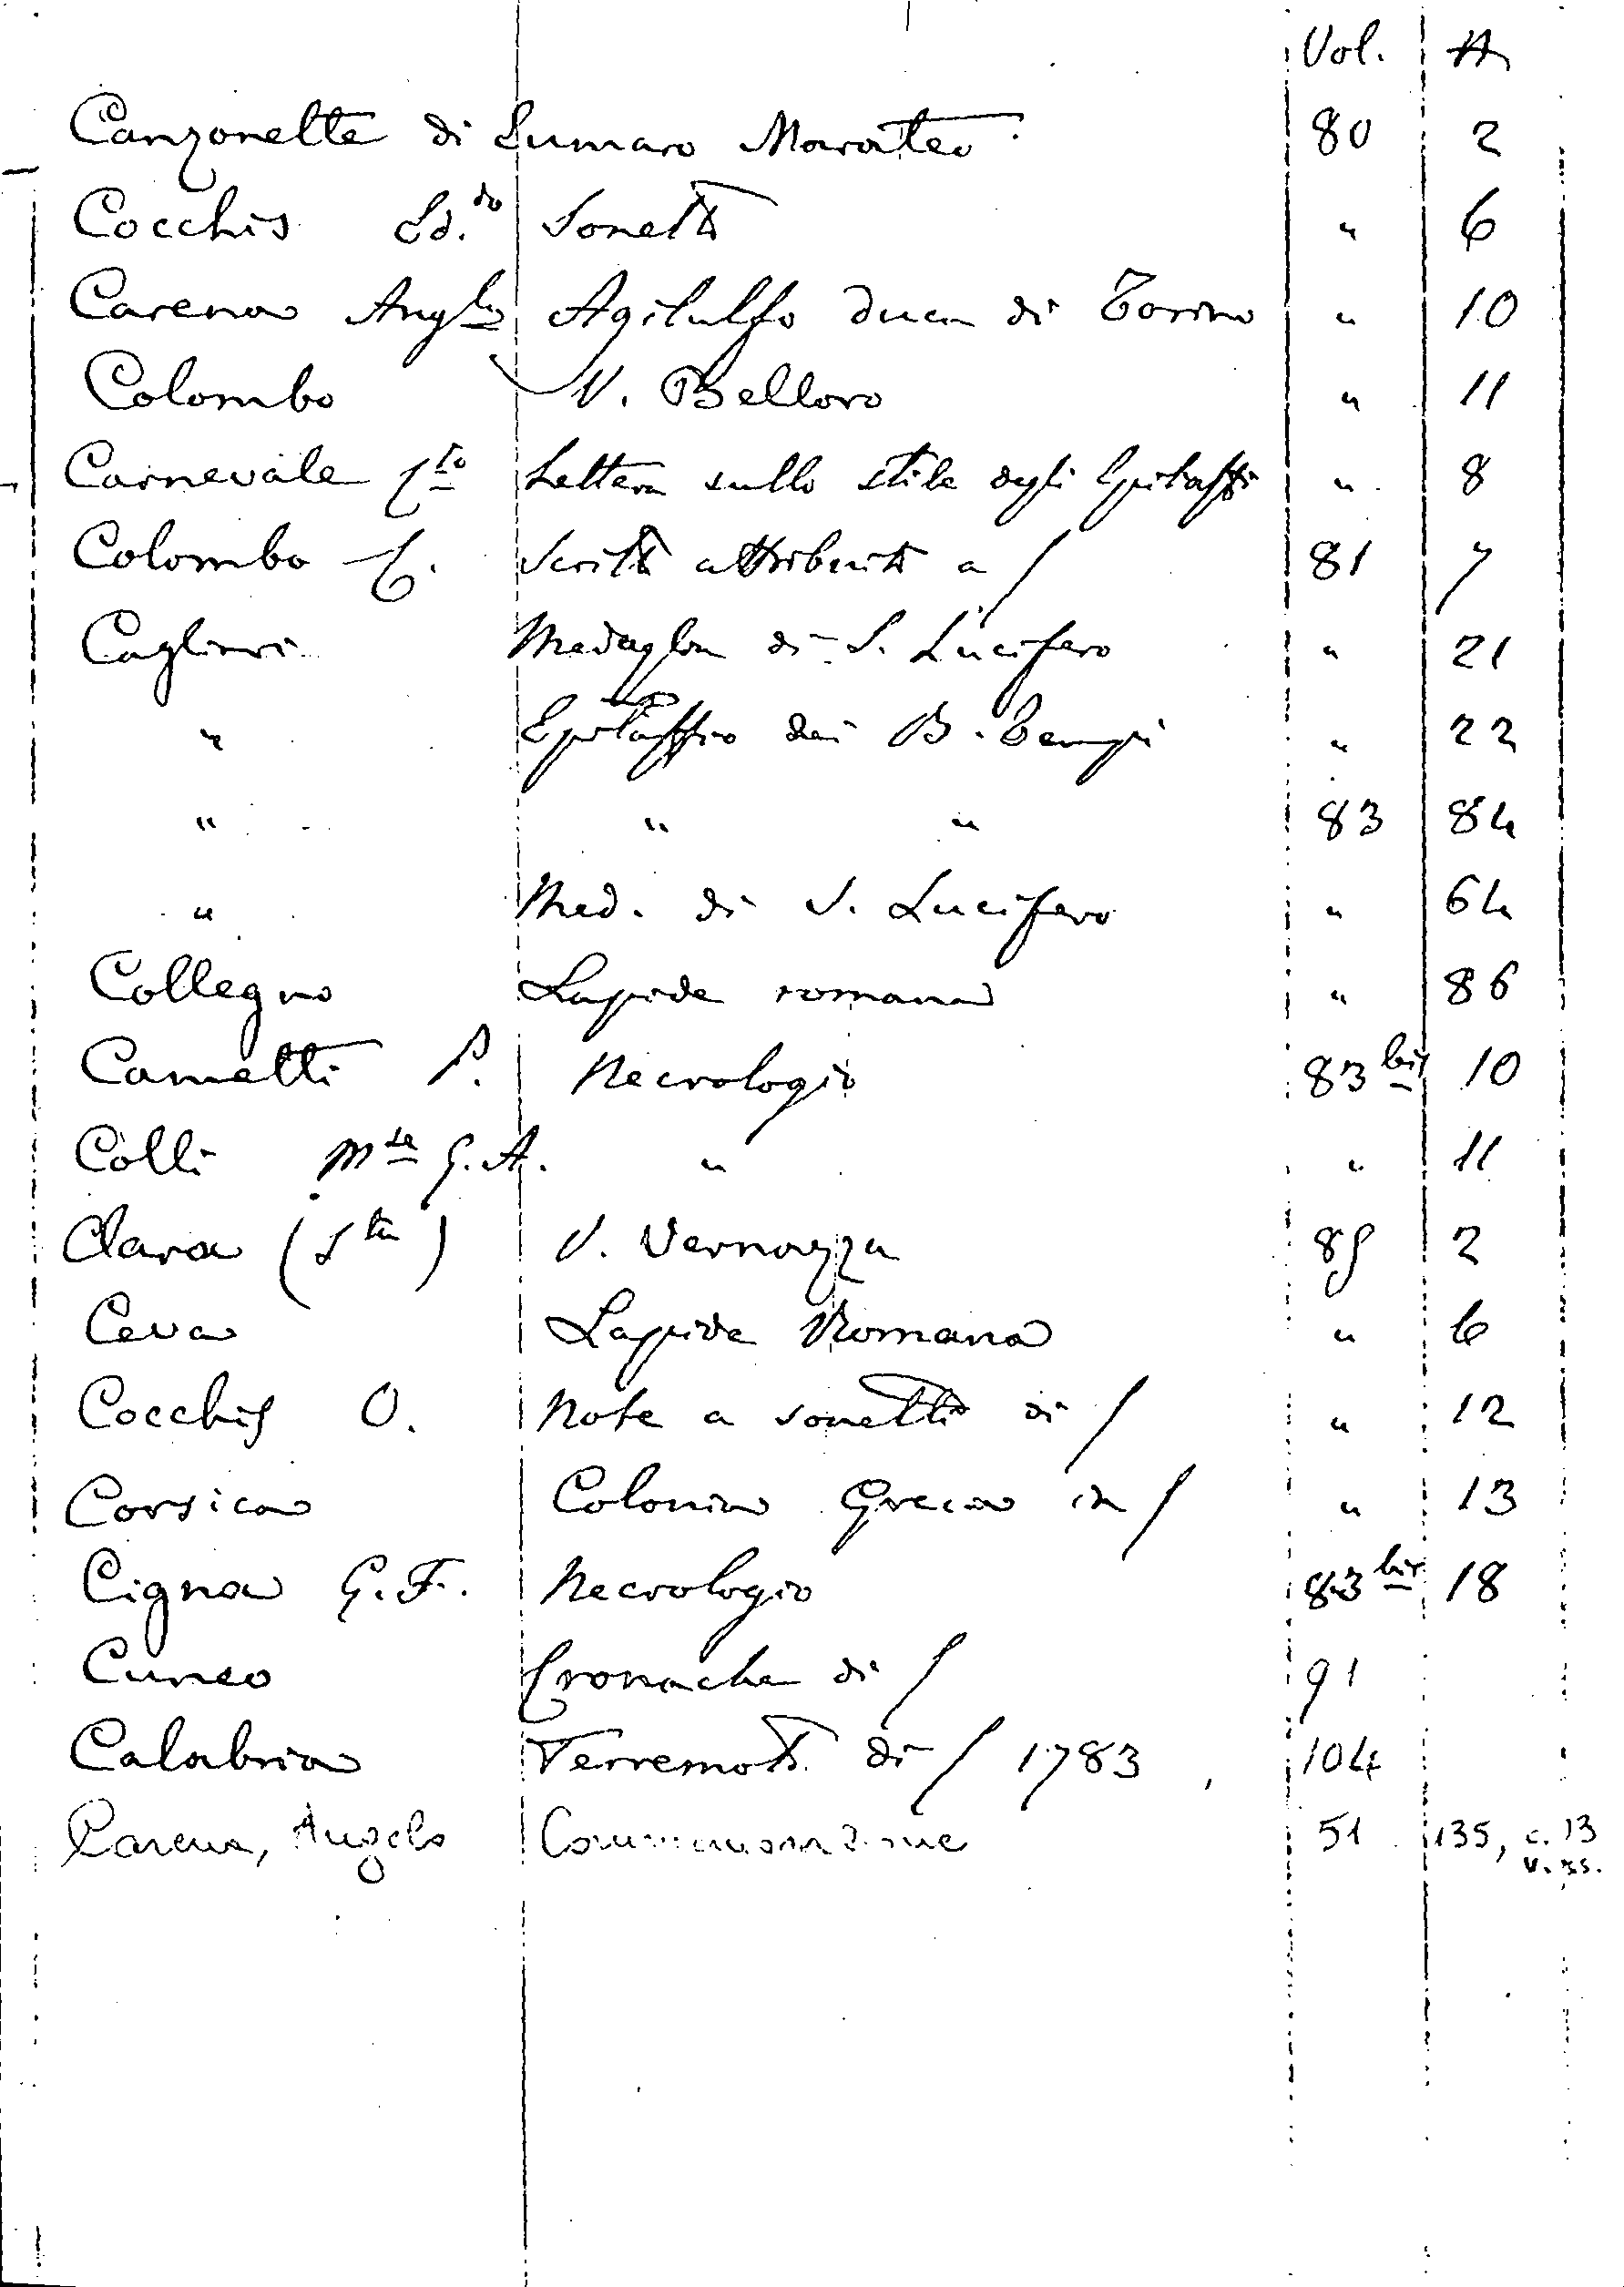 Vol. N
Canzonette di Sumaro Marateo 80 2
Cocchis Ed.do Sonetti " 6
Carena Anglo Agilulfo duca di Torino " 10
Colombo V. Belloro " 11
Carnevale Cto Lettera sullo stile degli Epitaffi " 8
Colombo C. Scritti attribuiti a / 81 7
Cagliari Medaglia di S. Lucifero " 21
" Epitaffio dei B. Tempi " 22
" " " 83 84
" Med. di S. Lucifero " 64
Collegno Lapide romana " 86
Cametti P. Necrologio 83 bis 10
Colli Mse G. A. " " 11
Clara (Sta) V. Vernazza 85 2
Ceva Lapide Romana " 6
Cocchis O. Note a sonetti di / " 12
Corsica Colonia Greca in / " 13
Cigna G. F. Necrologio 83 bis 18
Cuneo Cronache di / 91
Calabria Terremoti di / 1783 104
Carena, Angelo Commemorazione 51 135, c. 13
v. ss.